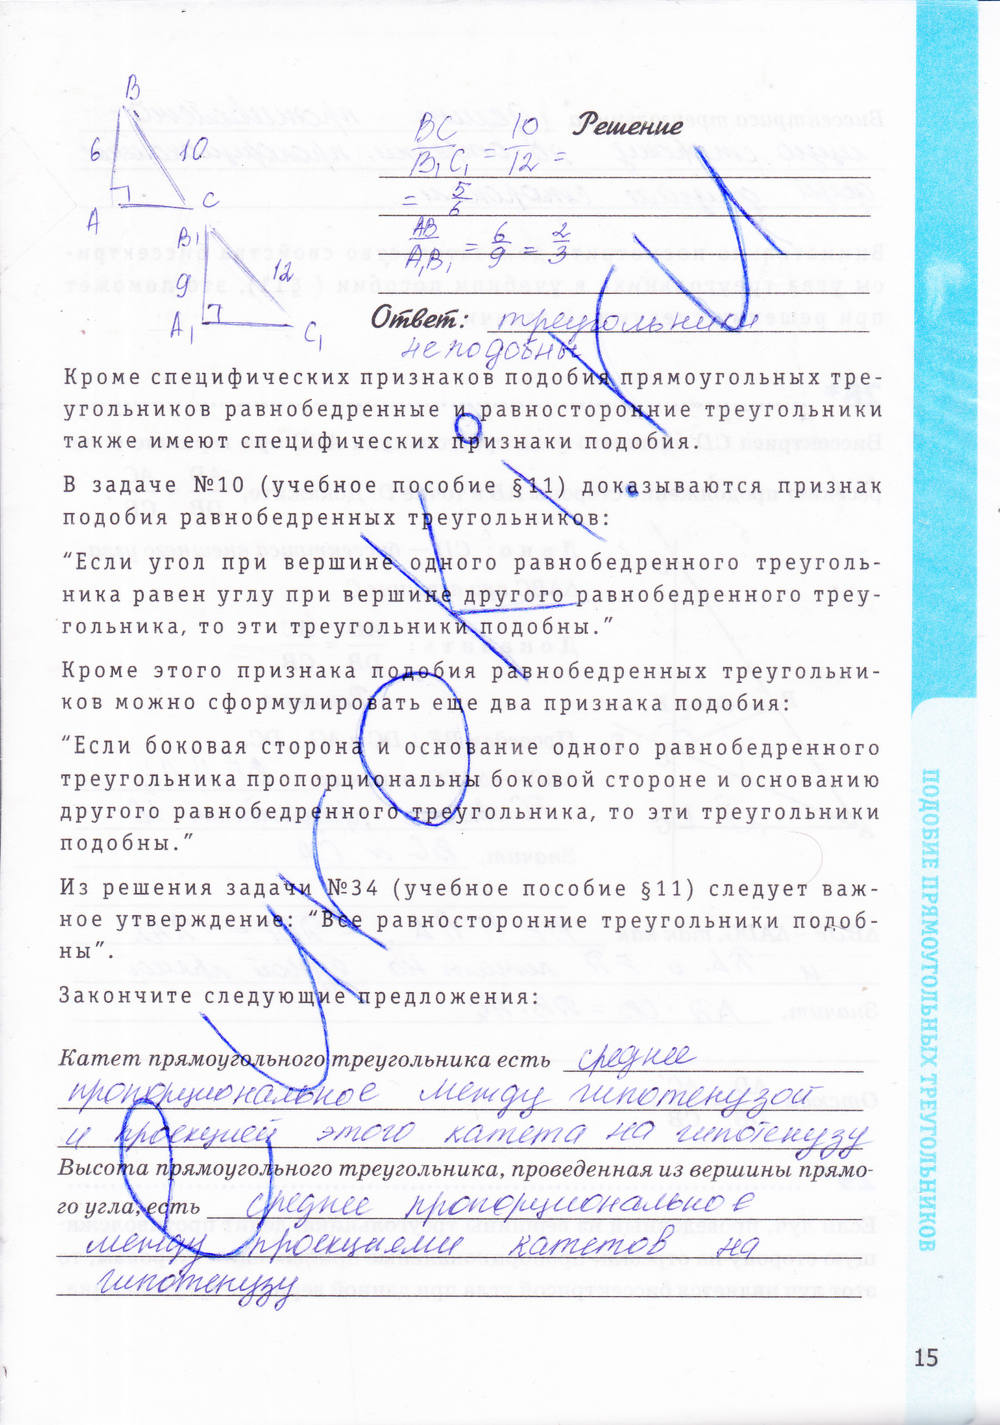 B
6 10
A C
B₁
9 12
A₁ C₁
Решение
BC/B₁C₁ = 10/12 =
= 5/6
AB/A₁B₁ = 6/9 = 2/3
Ответ: треугольники
неподобны
Кроме специфических признаков подобия прямоугольных тре-
угольников равнобедренные и равносторонние треугольники
также имеют специфических признаки подобия.
В задаче №10 (учебное пособие §11) доказываются признак
подобия равнобедренных треугольников:
“Если угол при вершине одного равнобедренного треуголь-
ника равен углу при вершине другого равнобедренного треу-
гольника, то эти треугольники подобны.”
Кроме этого признака подобия равнобедренных треугольни-
ков можно сформулировать еще два признака подобия:
“Если боковая сторона и основание одного равнобедренного
треугольника пропорциональны боковой стороне и основанию
другого равнобедренного треугольника, то эти треугольники
подобны.”
Из решения задачи №34 (учебное пособие §11) следует важ-
ное утверждение: “Все равносторонние треугольники подоб-
ны”.
Закончите следующие предложения:
Катет прямоугольного треугольника есть среднее
пропорциональное между гипотенузой
и проекцией этого катета на гипотенузу
Высота прямоугольного треугольника, проведенная из вершины прямо-
го угла, есть среднее пропорциональное
между проекциями катетов на
гипотенузу
ПОДОБИЕ ПРЯМОУГОЛЬНЫХ ТРЕУГОЛЬНИКОВ
15